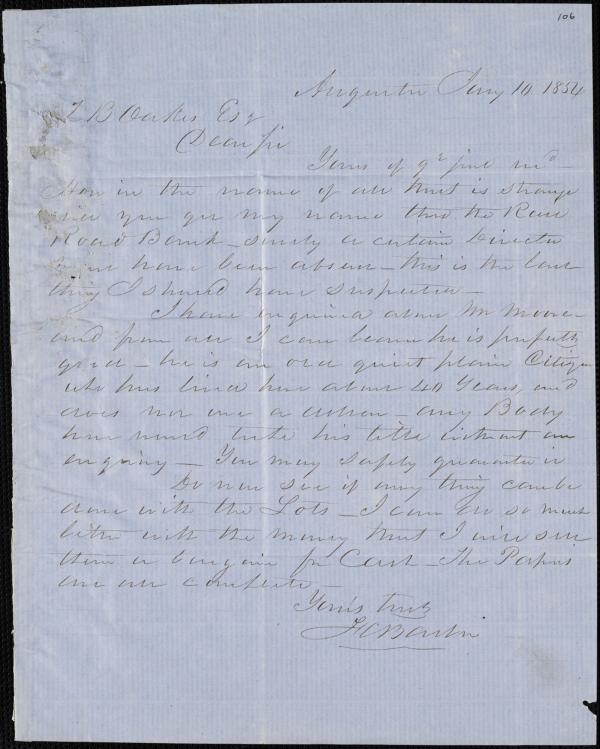 106
Augusta Jany 10 1854
Z B Oakes Esq
Dear Sir
Yours of 9th just recd
How in the name of all that is strange
did you get my name thro the Rail
Road Bank - surely a certain Director
must have been absent - this is the last
thing I should have suspected -
I have enquired about Mr Moore
and from all I can learn he is perfectly
good - he is an old quiet plain Citizen
who has lived here about 40 Years, and
does not owe a dollar - any Body
here would take his titles without an
enquiry - You may safely guarantee it
Do now see if any thing can be
done with the Lots - I can do so much
better with the money that I will sell
them a bargain for Cash - The Papers
are all complete -
Yours truly